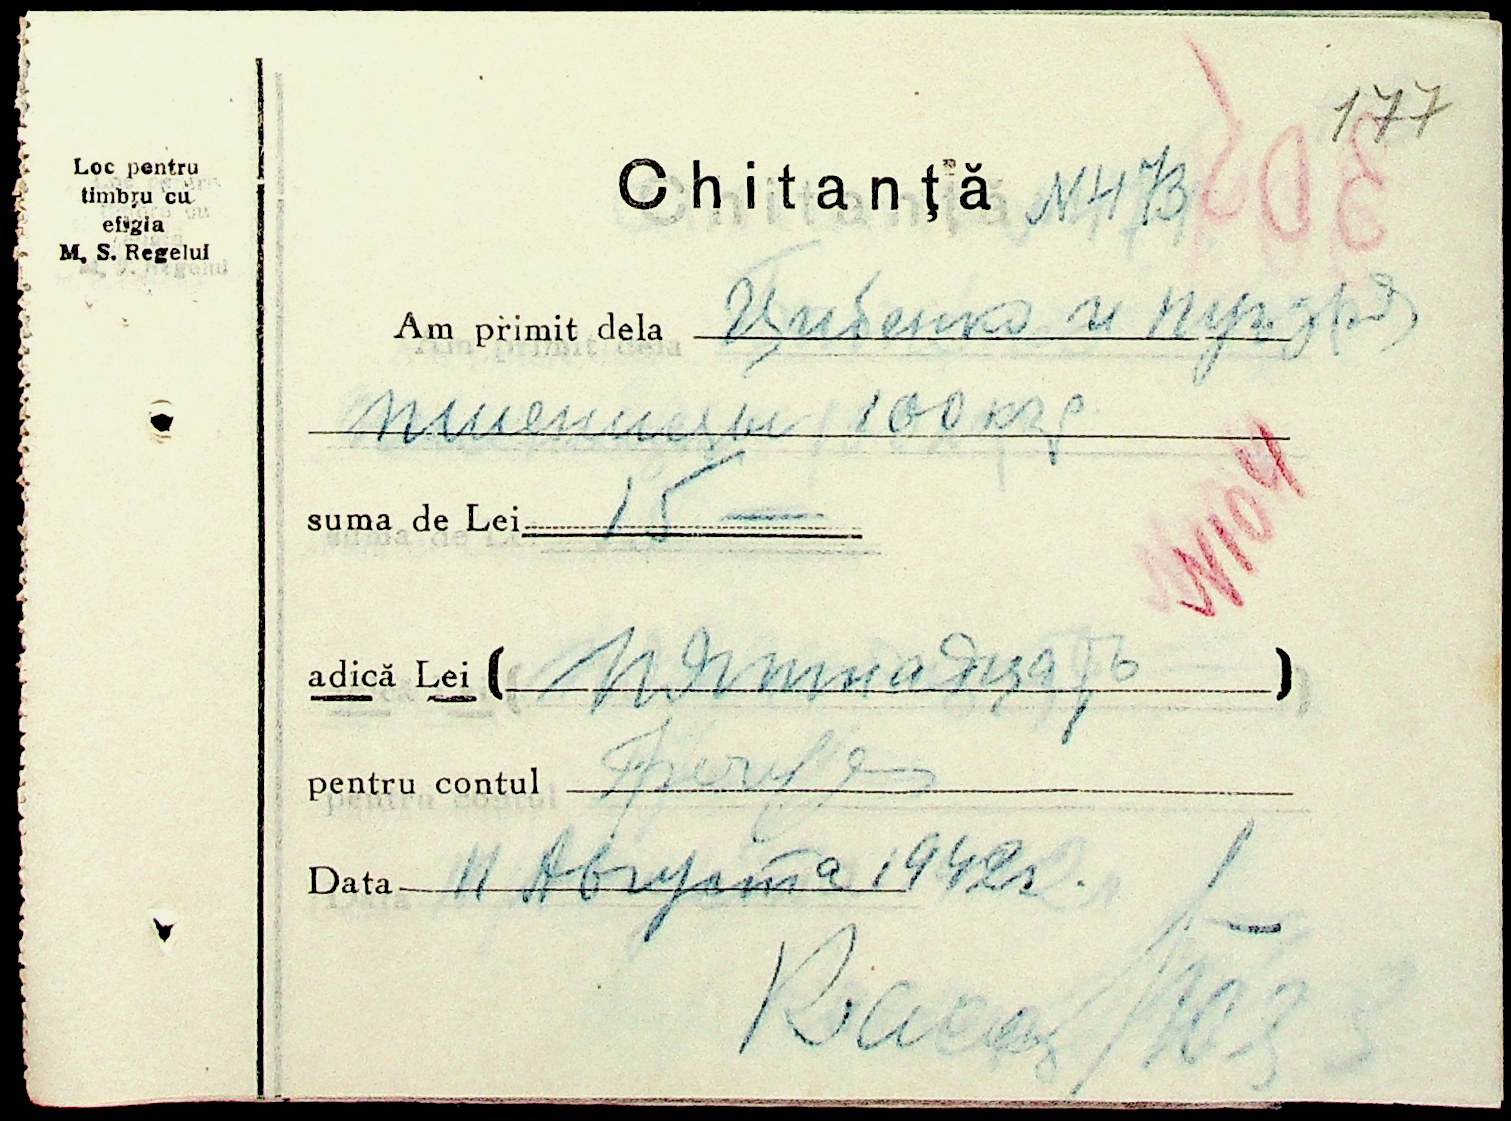 177
Loc pentru
timbru cu
efigia
M. S. Regelui
Chitanță N 473
Am primit dela Цибенко и
пшеницы 100 кгр
suma de Lei 15 —
N 104
adică Lei (Пятнадцать)
pentru contul
Data 11 Августа 1942 г.